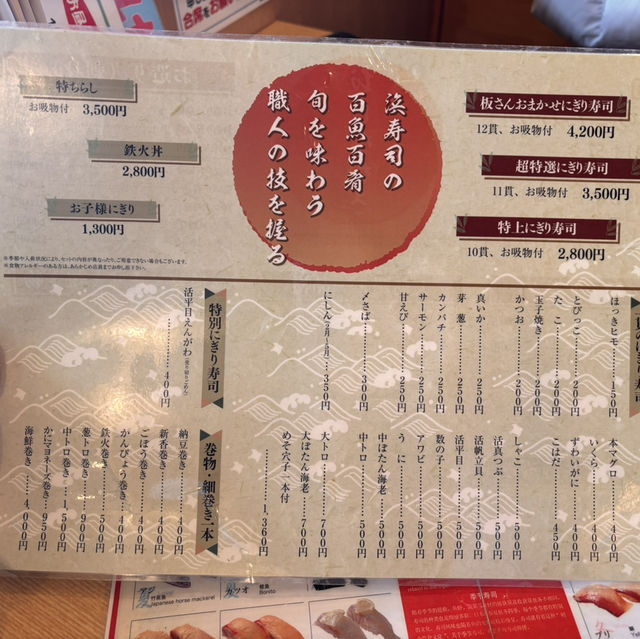 浜寿司の
百魚百肴
旬を味わう
職人の技を握る
板さんおまかせにぎり寿司
12貫、お吸物付 4,200円
超特選にぎり寿司
11貫、お吸物付 3,500円
特上にぎり寿司
10貫、お吸物付 2,800円
特ちらし
お吸物付 3,500円
鉄火丼
2,800円
お子様にぎり
1,300円
※季節や入荷状況により、セットの内容が異なったり、ご用意できない場合もございます。
※食物アレルギーのある方は、あらかじめ店員までお申し出下さい。
ほっきヒモ 150円
とびっこ 200円
たこ 200円
玉子焼き 200円
かつお 200円
真いか 250円
芽葱 250円
カンパチ 250円
サーモン 250円
甘えび 250円
〆さば 300円
にしん 350円
本マグロ 400円
いくら 400円
ずわいがに 400円
こはだ 450円
しゃこ 500円
活真つぶ 500円
活帆立貝 500円
活平目 500円
数の子 500円
アワビ 500円
うに 500円
中ぼたん海老 500円
中トロ 500円
大トロ 700円
大ぼたん海老 700円
めそ穴子一本付 1,360円
特別にぎり寿司
活平目えんがわ(売り切れごめん) 400円
巻物・細巻き一本
納豆巻き 400円
新香巻き 400円
ごぼう巻き 400円
がんぴょう巻き 400円
鉄火巻き 500円
葱トロ巻き 900円
中トロ巻き 1,500円
かにマヨネーズ巻き 950円
海鮮巻き 4,000円
アジ
竹莢魚
Japanese horse mackerel
カツオ
鲣鱼
Bonito
季节寿司
ブリ